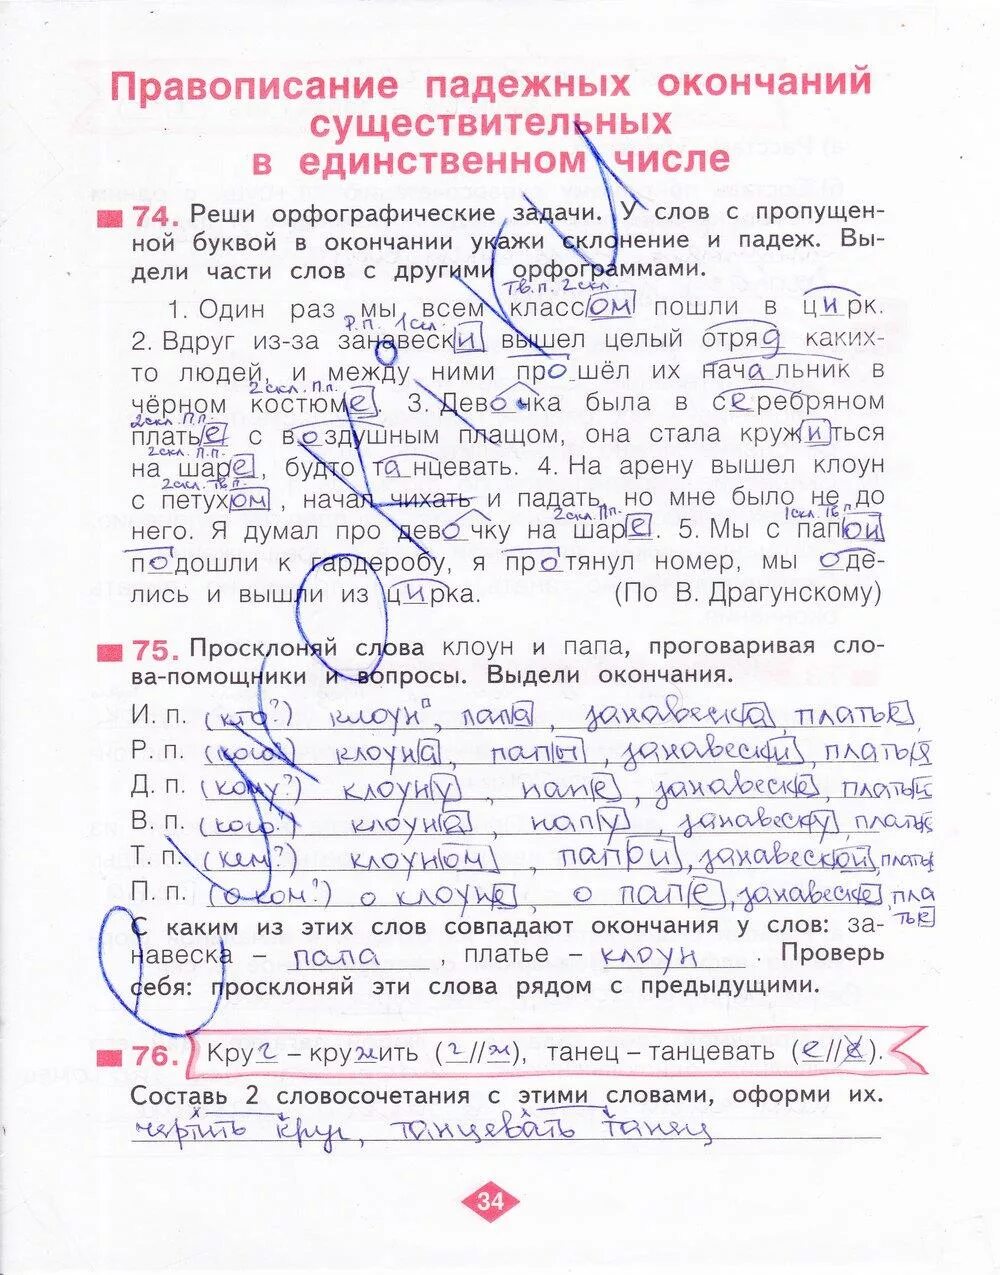 Правописание падежных окончаний
существительных
в единственном числе
74. Реши орфографические задачи. У слов с пропущен-
ной буквой в окончании укажи склонение и падеж. Вы-
дели части слов с другими орфограммами.
Тв. п. 2 скл.
1. Один раз мы всем классом пошли в цирк.
Р.п. 1 скл.
2. Вдруг из-за занавески вышел целый отряд каких-
то людей, и между ними прошёл их начальник в
2 скл. П.п.
чёрном костюме. 3. Девочка была в серебряном
2 скл. П.п.
платье с воздушным плащом, она стала кружиться
2 скл. П.п.
на шаре, будто танцевать. 4. На арену вышел клоун
2 скл. Тв. п.
с петухом, начал чихать и падать, но мне было не до
2 скл. П.п. 1 скл. Тв. п.
него. Я думал про девочку на шаре. 5. Мы с папой
подошли к гардеробу, я протянул номер, мы оде-
лись и вышли из цирка. (По В. Драгунскому)
75. Просклоняй слова клоун и папа, проговаривая сло-
ва-помощники и вопросы. Выдели окончания.
И. п. (кто?) клоун, папа, занавеска, платье
Р. п. (кого?) клоуна, папы, занавески, платья
Д. п. (кому?) клоуну, папе, занавеске, платью
В. п. (кого?) клоуна, папу, занавеску, платье
Т. п. (кем?) клоуном, папой, занавеской, платье
П. п. (о ком?) о клоуне, о папе, занавеске, пла
тье
С каким из этих слов совпадают окончания у слов: за-
навеска – папа, платье – клоун. Проверь
себя: просклоняй эти слова рядом с предыдущими.
76. Круг – кружить (г//ж), танец – танцевать (е//е).
Составь 2 словосочетания с этими словами, оформи их.
чертить круг, танцевать танец
34
УРОКИ.КУ